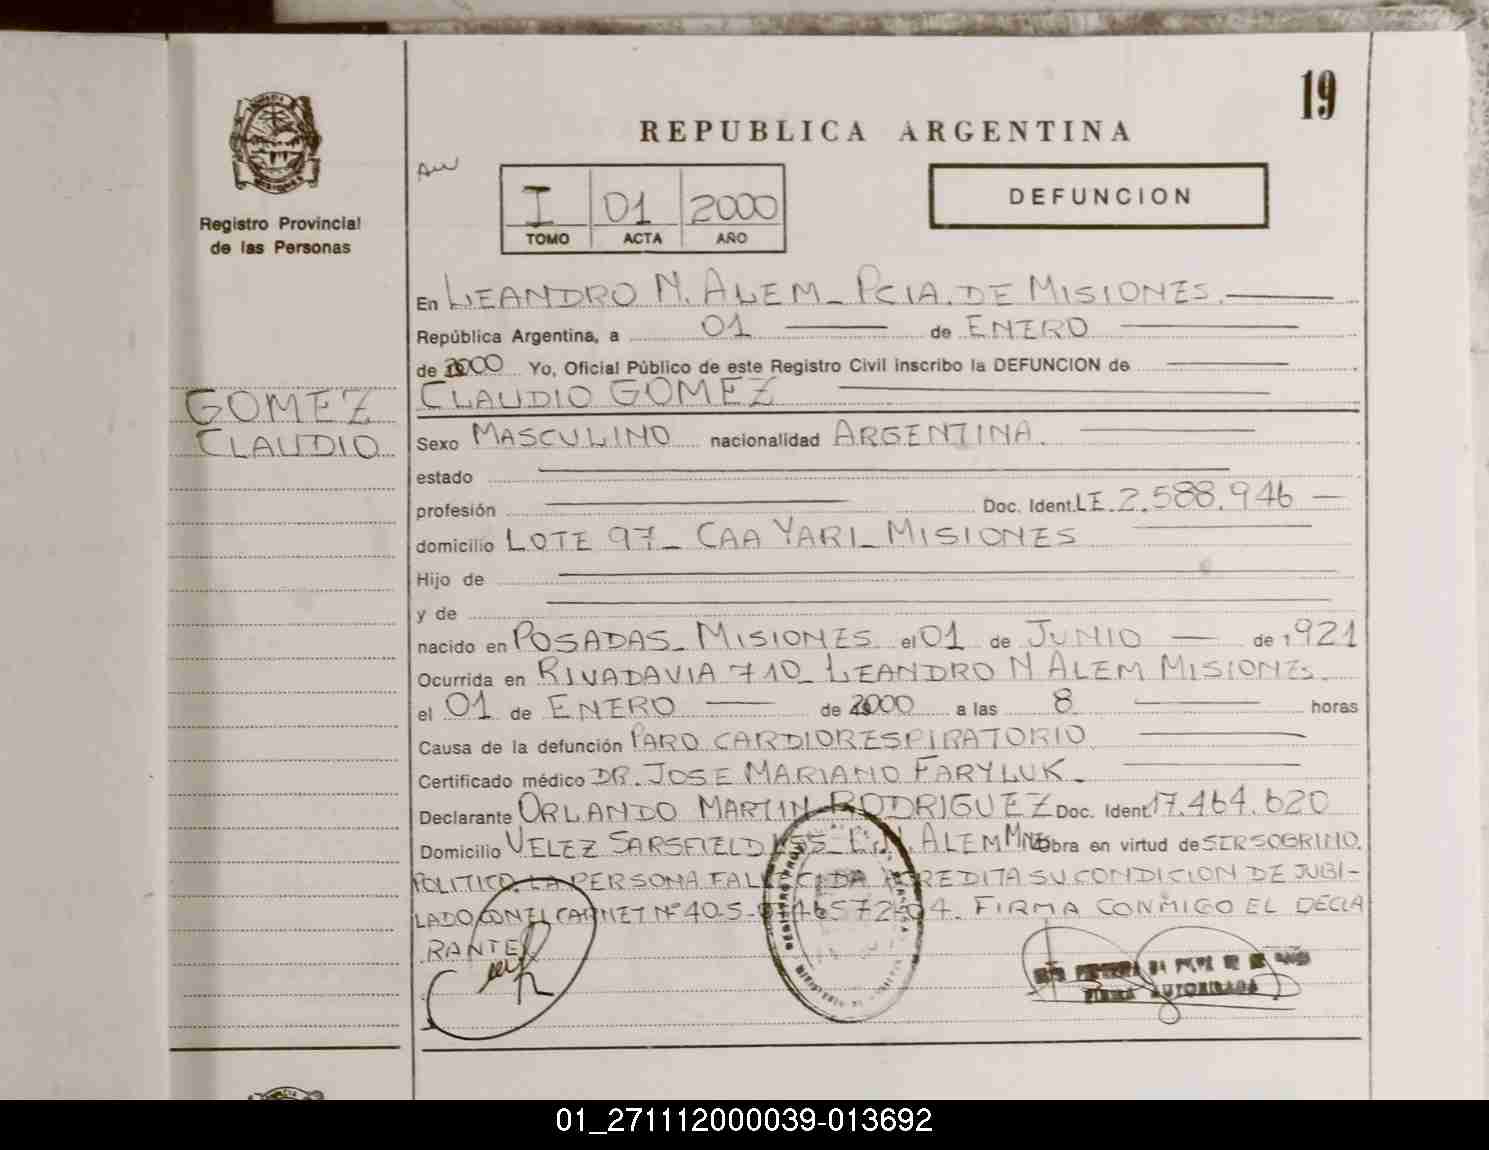 19
REPUBLICA ARGENTINA
DEFUNCION
I 01 2000
TOMO ACTA AÑO
Registro Provincial
de las Personas
En LEANDRO N. ALEM - PCIA. DE MISIONES.
República Argentina, a 01 de ENERO
de 2000 Yo, Oficial Público de este Registro Civil inscribo la DEFUNCION de
CLAUDIO GOMEZ
GOMEZ
CLAUDIO
Sexo MASCULINO nacionalidad ARGENTINA.
estado
profesión Doc. Ident. LE. 2.588.946
domicilio LOTE 97 - CAA YARI - MISIONES
Hijo de
y de
nacido en POSADAS - MISIONES el 01 de JUNIO de 1921
Ocurrida en RIVADAVIA 710 - LEANDRO N ALEM MISIONES.
el 01 de ENERO de 2000 a las 8 horas
Causa de la defunción PARO CARDIORESPIRATORIO
Certificado médico DR. JOSE MARIANO FARYLUK.
Declarante ORLANDO MARTIN RODRIGUEZ Doc. Ident 17.464.620
Domicilio VELEZ SARSFIELD ALEM Mnes obra en virtud de SER SOBRINO
POLITICO. LA PERSONA FALLECIDA ACREDITA SU CONDICION DE JUBI-
LADO CON EL CARNET Nº 40-5- FIRMA CONMIGO EL DECLA
RANTE
FIRMA AUTORIZADA
01_271112000039-013692